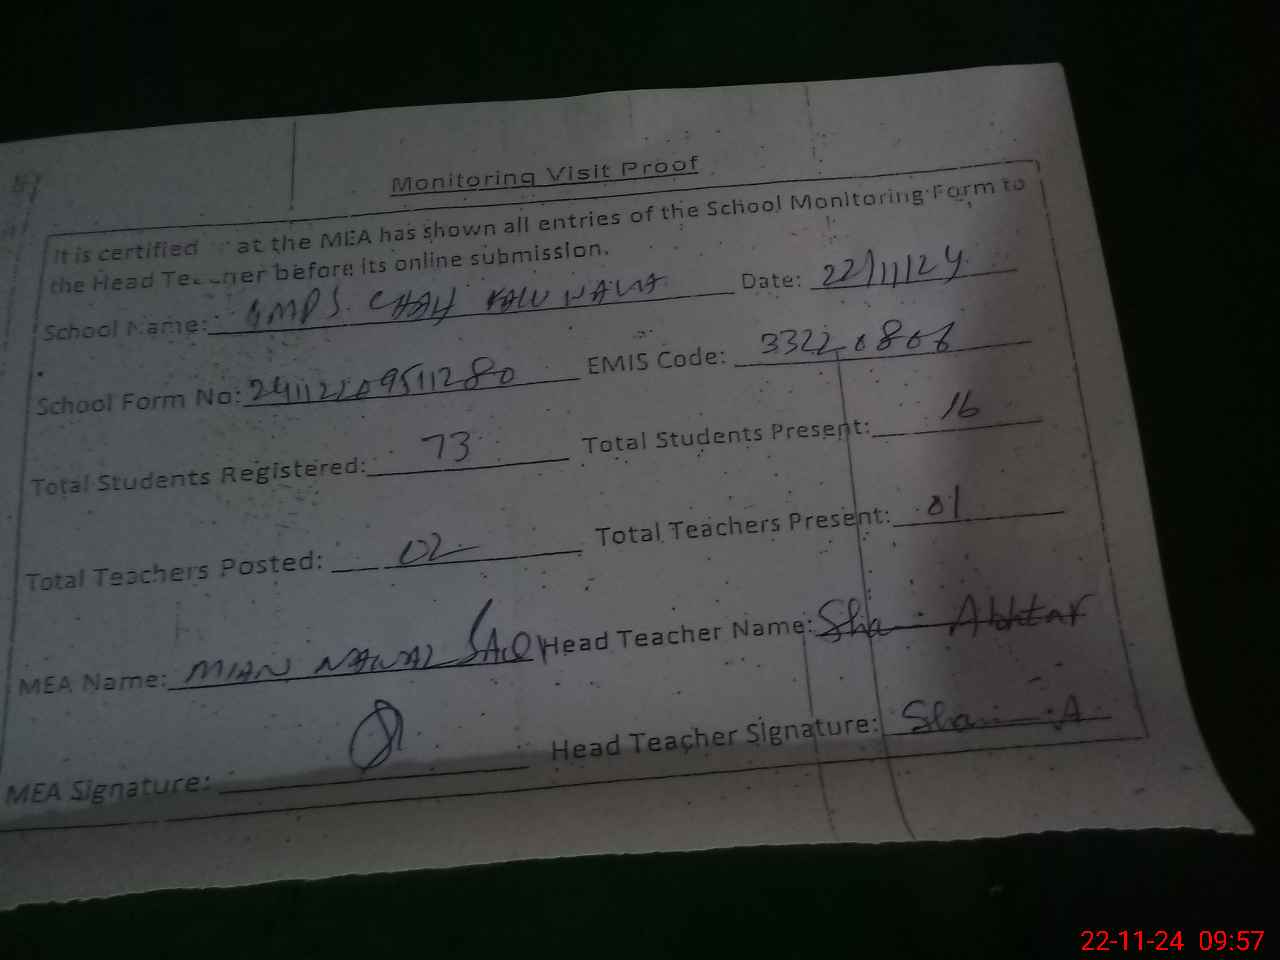 Monitoring Visit Proof
It is certified at the MEA has shown all entries of the School Monitoring Form to
the Head Teacher before its online submission.
School Name: GMPS. CHAH KALU NAWA Date: 22/11/24
School Form No: EMIS Code: 33220806
Total Students Registered: 73 Total Students Present: 16
Total Teachers Posted: 02 Total Teachers Present: 01
MEA Name: MIAN NAWAL Head Teacher Name: Akhtar
MEA Signature: Head Teacher Signature:
22-11-24 09:57